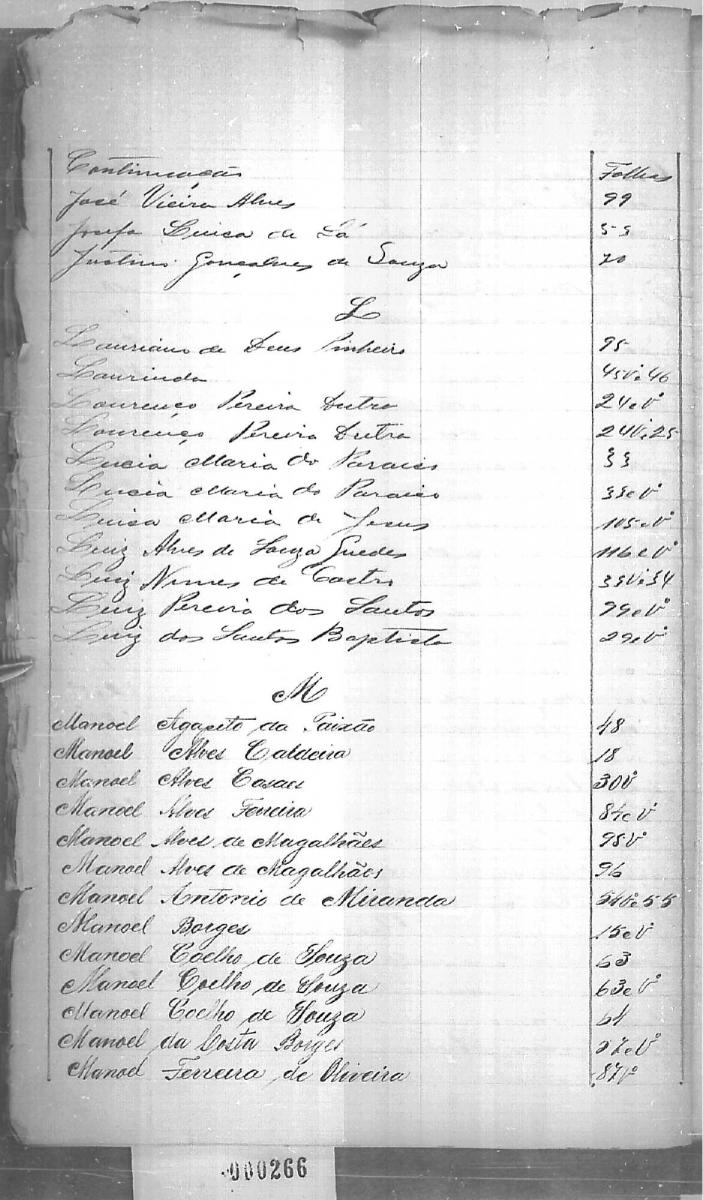 Continuação Folhas
José Vieira Alves 99
Josefa Luisa de Sá 55
Justino Gonçalves de Souza 70
L
Lauriano de Deus Pinheiro 95
Laurinda 45Vº e 46
Lourenço Pereira Dutra 24 e Vº
Lourenço Pereira Dutra 24Vº e 25
Lucia Maria do Paraiso 33
Lucia Maria do Paraiso 33 e Vº
Luisa Maria de Jesus 105 e Vº
Luiz Alves de Souza Guedes 116 e Vº
Luiz Nunes de Castro 33Vº e 34
Luiz Pereira dos Santos 99 e Vº
Luiz dos Santos Baptista 29 e Vº
M
Manoel Agapito da Paixão 48
Manoel Alves Caldeira 18
Manoel Alves Casaes 30Vº
Manoel Alves Ferreira 84 e Vº
Manoel Alves de Magalhães 95Vº
Manoel Alves de Magalhães 96
Manoel Antonio de Miranda 54Vº e 55
Manoel Borges 15 e Vº
Manoel Coelho de Souza 63
Manoel Coelho de Souza 63 e Vº
Manoel Coelho de Souza 64
Manoel da Costa Borges e Vº
Manoel Ferreira de Oliveira 87Vº
000266